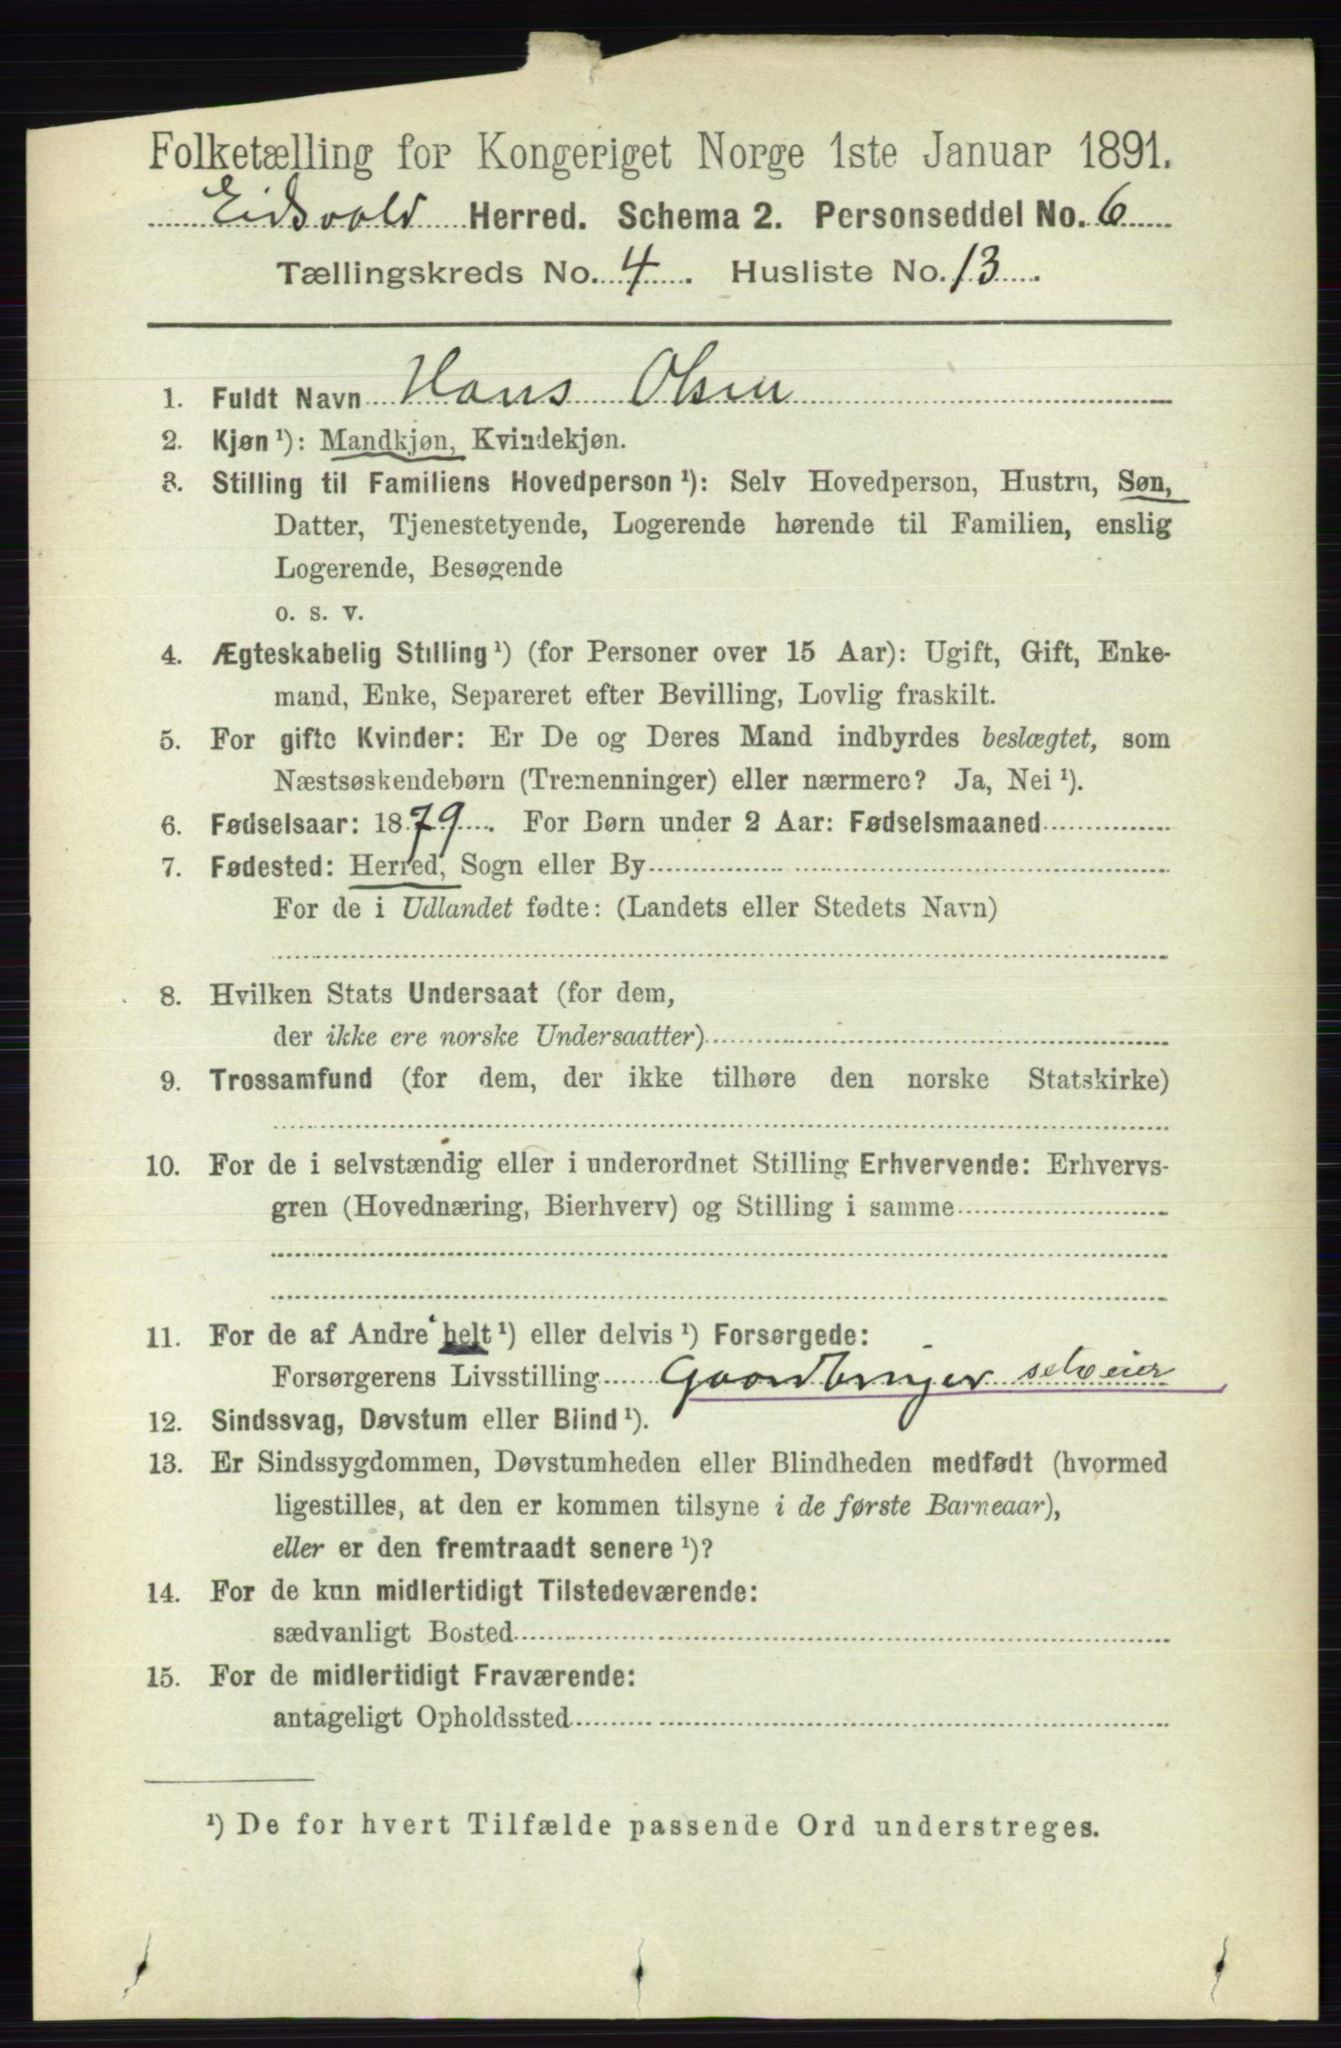 Folketælling for Kongeriget Norge 1ste Januar 1891.
Eidsvold Herred. Schema 2. Personseddel No. 6
Tællingskreds No. 4. Husliste No. 13.
1. Fuldt Navn Hans Olsen
2. Kjøn ¹): Mandkjøn, Kvindekjøn.
3. Stilling til Familiens Hovedperson ¹): Selv Hovedperson, Hustru, Søn,
Datter, Tjenestetyende, Logerende hørende til Familien, enslig
Logerende, Besøgende
o. s. v.
4. Ægteskabelig Stilling ¹) (for Personer over 15 Aar): Ugift, Gift, Enke-
mand, Enke, Separeret efter Bevilling, Lovlig fraskilt.
5. For gifte Kvinder: Er De og Deres Mand indbyrdes beslægtet, som
Næstsøskendebørn (Tremenninger) eller nærmere? Ja, Nei ¹).
6. Fødselsaar: 1879. For Børn under 2 Aar: Fødselsmaaned
7. Fødested: Herred, Sogn eller By
For de i Udlandet fødte: (Landets eller Stedets Navn)
8. Hvilken Stats Undersaat (for dem,
der ikke ere norske Undersaatter)
9. Trossamfund (for dem, der ikke tilhøre den norske Statskirke)
10. For de i selvstændig eller i underordnet Stilling Erhvervende: Erhvervs-
gren (Hovednæring, Bierhverv) og Stilling i samme
11. For de af Andre helt ¹) eller delvis ¹) Forsørgede:
Forsørgerens Livsstilling Gaardbruger selveier
12. Sindssvag, Døvstum eller Blind ¹).
13. Er Sindssygdommen, Døvstumheden eller Blindheden medfødt (hvormed
ligestilles, at den er kommen tilsyne i de første Barneaar),
eller er den fremtraadt senere ¹)?
14. For de kun midlertidigt Tilstedeværende:
sædvanligt Bosted
15. For de midlertidigt Fraværende:
antageligt Opholdssted
¹) De for hvert Tilfælde passende Ord understreges.